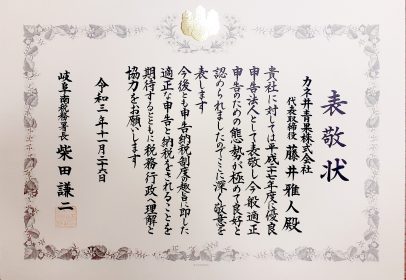 表敬状
カネ井青果株式会社
代表取締役 藤井雅人殿
貴社に対しては平成二十七年度に優良
申告法人として表敬し今般適正
申告のための態勢が極めて良好と
認められましたのでここに深く敬意を
表します
今後とも申告納税制度の趣旨に即した
適正な申告と納税をされることを
期待するとともに税務行政へ理解と
協力をお願いします
令和三年十一月二十六日
岐阜南税務署長 柴田謙二